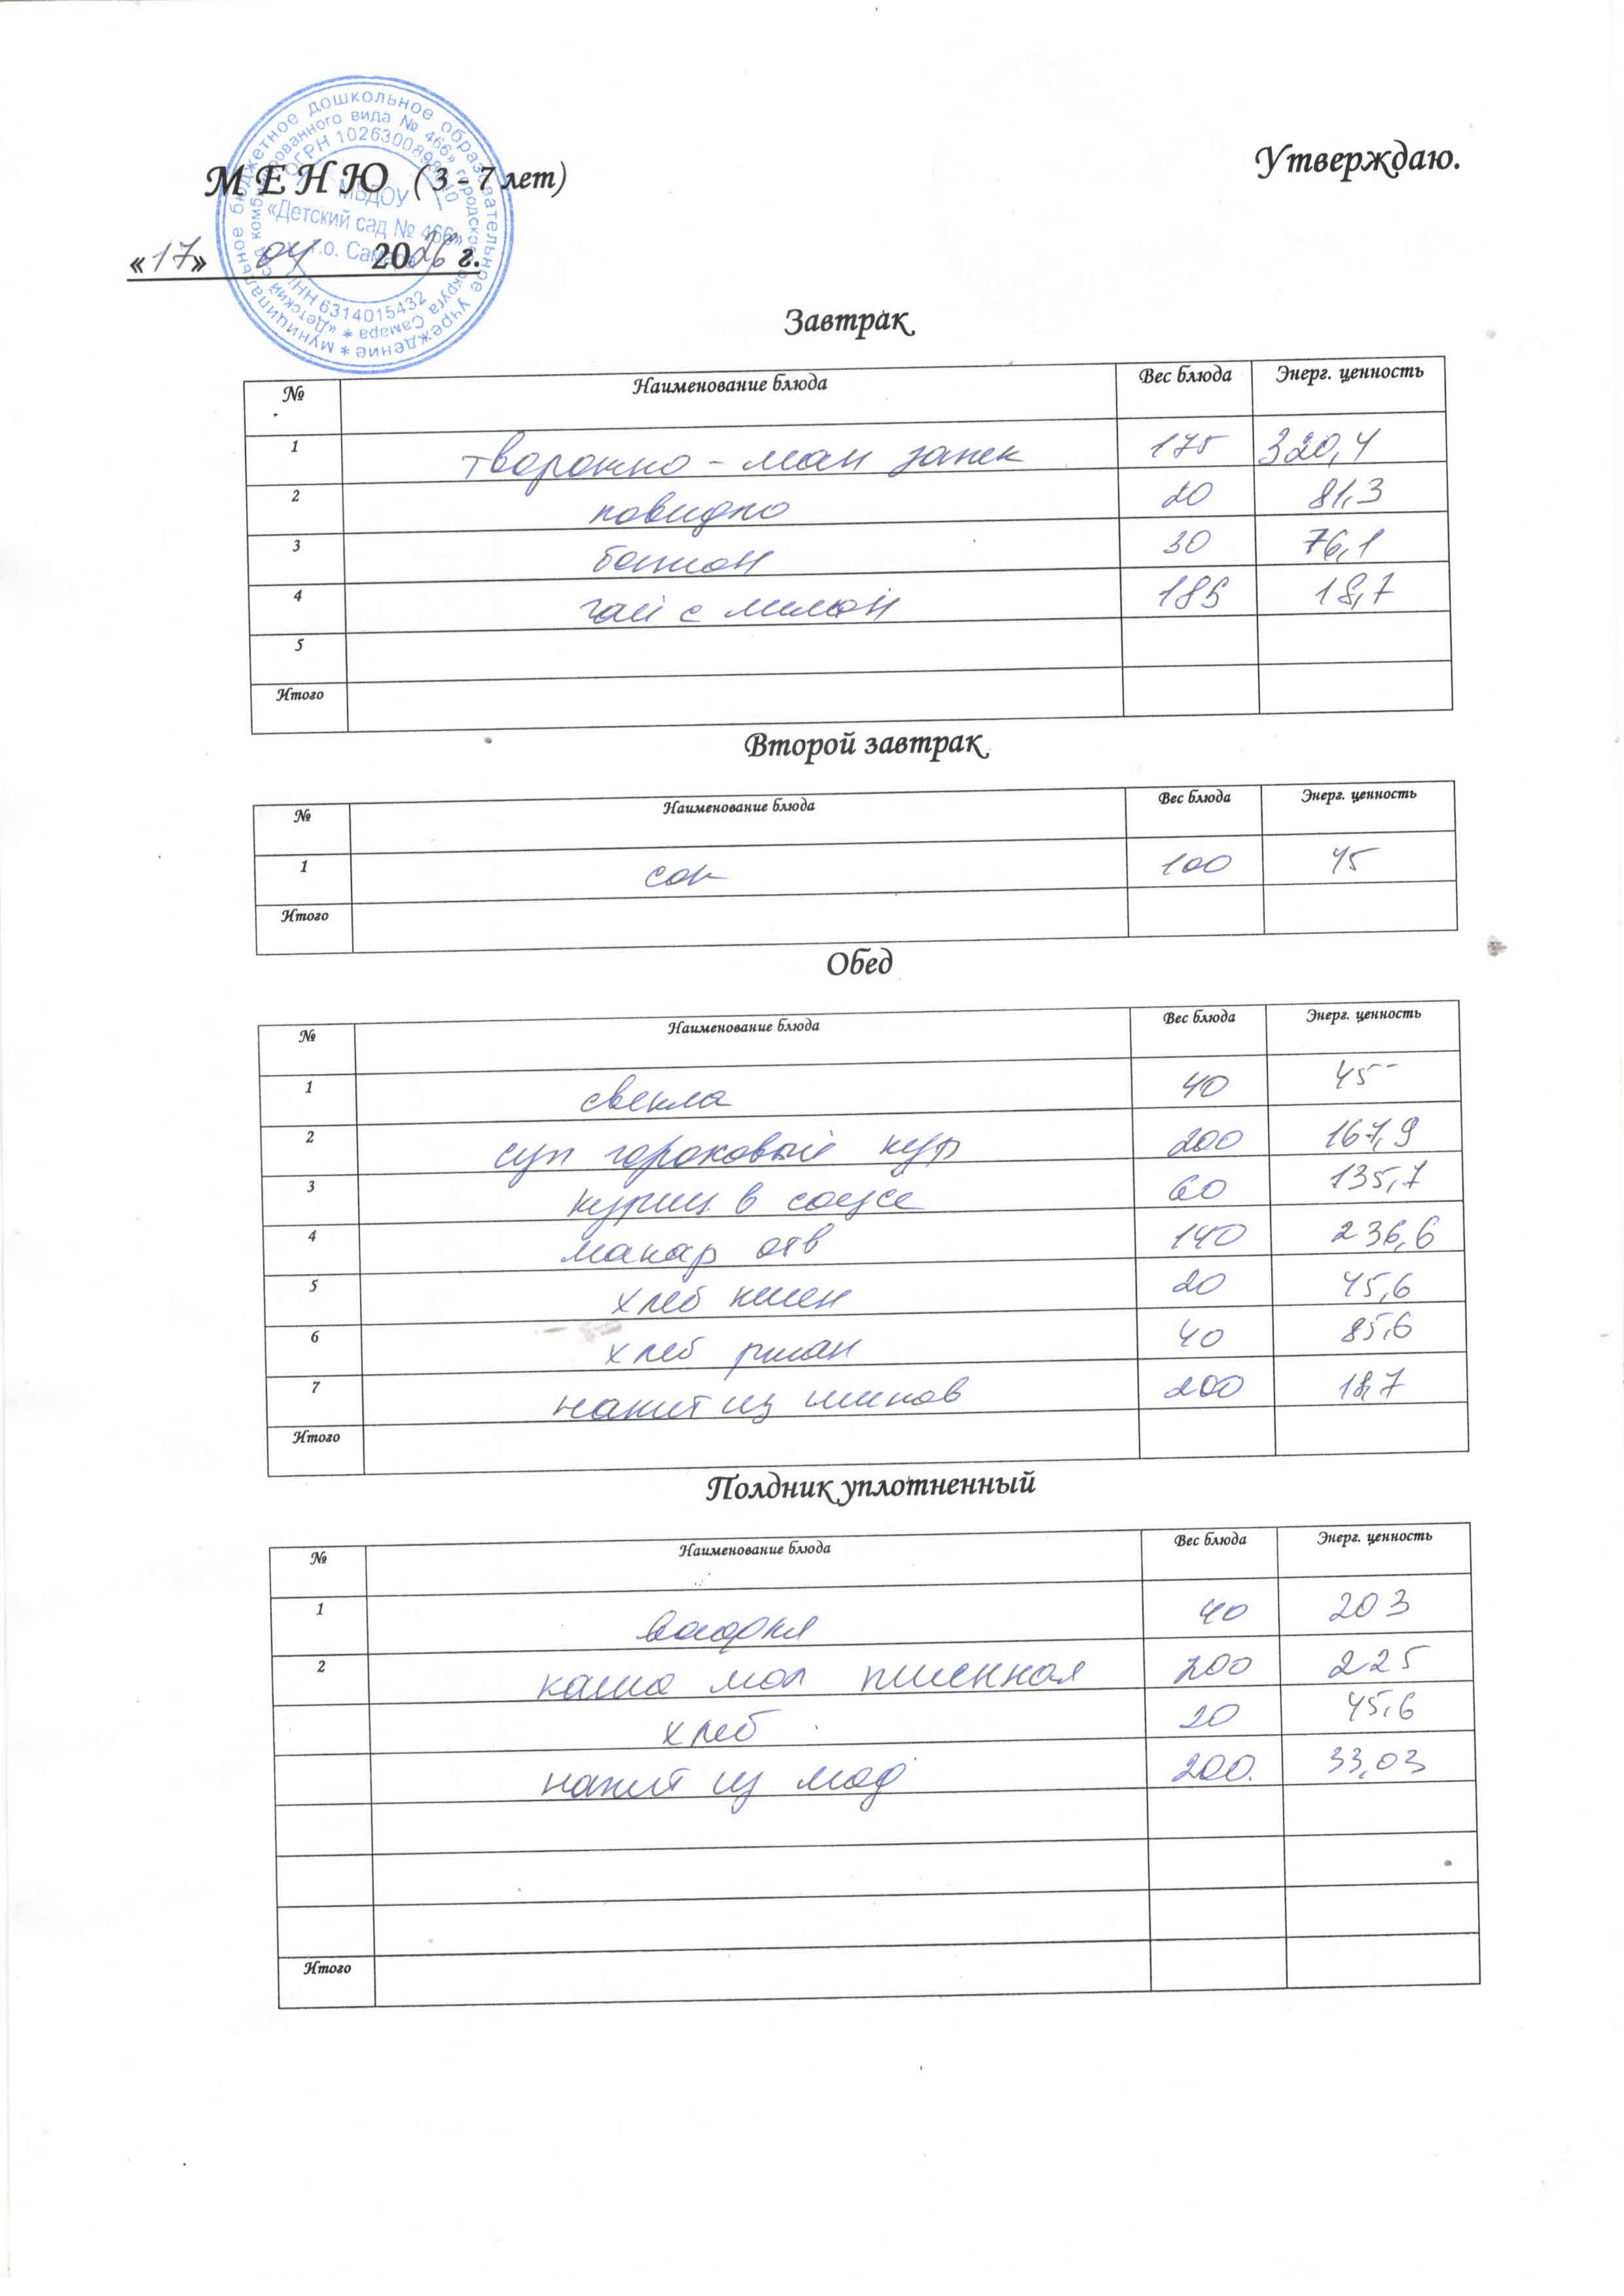 Утверждаю.
МЕНЮ (3 - 7 лет)
«17» 04 2026 г.
муниципальное бюджетное дошкольное образовательное учреждение *
«Детский сад комбинированного вида № 466» городского округа Самара *
МБДОУ
«Детский сад № 466»
г.о. Самара
ИНН 6314015432
Завтрак
№ Наименование блюда Вес блюда Энерг. ценность
1 творожно - ман запек 175 320,4
2 повидло 20 81,3
3 батон 30 76,1
4 чай с 185 18,7
5
Итого
Второй завтрак
№ Наименование блюда Вес блюда Энерг. ценность
1 сок 100 45
Итого
Обед
№ Наименование блюда Вес блюда Энерг. ценность
1 свекла 40 45
2 суп гороховый кур 200 167,9
3 куриц в соусе 60 135,7
4 макар отв 140 236,6
5 хлеб пшен 20 45,6
6 хлеб ржан 40 85,6
7 напит из шипов 200 18,7
Итого
Полдник уплотненный
№ Наименование блюда Вес блюда Энерг. ценность
1 вафля 40 203
2 каша мол пшенная 200 225
хлеб 20 45,6
напит из 200 33,03
Итого